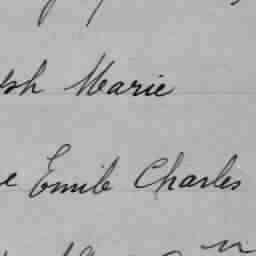 ph Marie
e Emile Charles